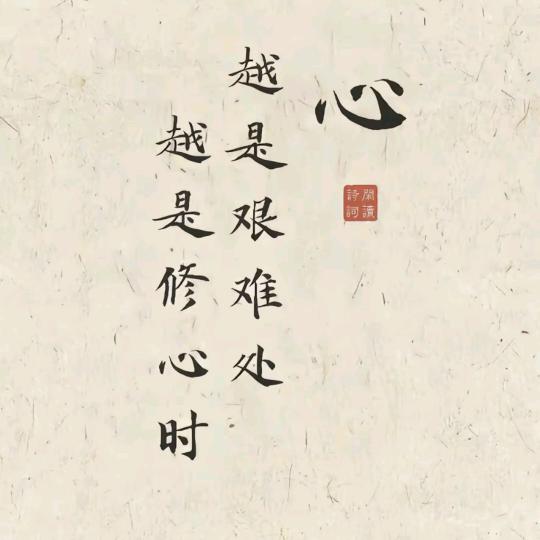 心
閑讀
詩詞
越是艰难处
越是修心时